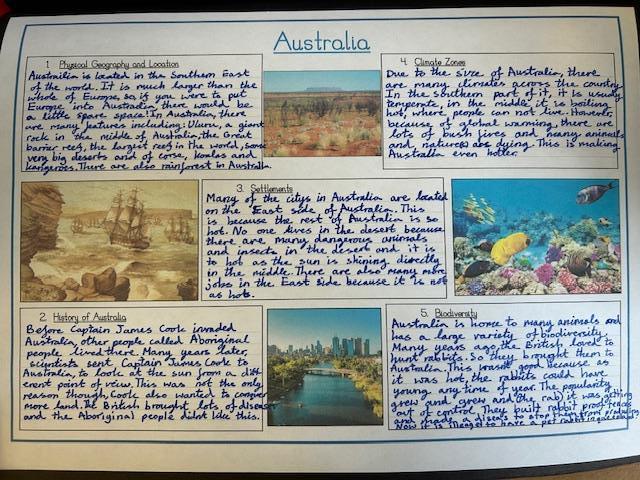 Australia
1 Physical Geography and Location
Australia is located in the Southern East
of the world. It is much larger than the
whole of Europe, so, if you were to put
Europe into Australia, there would be
a little spare space! In Australia, there
are many features including: Uluru, a giant
rock in the middle of Australia, the Great
barrier reef, the largest reef in the world, some
very big deserts and of corse, koalas and
kangeroos. There are also rainforest in Australia.
4. Climate Zones
Due to the size of Australia, there
are many climates across the country.
In the Southern part of it, it is usually
temperate, in the middle it is boiling
hot, where people can not live. However,
because of global warming, there are
lots of bush fires and many animals
and nature are dying. This is making
Australia even hotter.
3. Settlements
Many of the citys in Australia are located
on the East side of Australia. This
is because the rest of Australia is so
hot. No one lives in the desert because
there are many dangerous animals
and insects in the desert and it is
to hot as the sun is shining directly
in the middle. There are also many more
jobs in the East side because it is not
as hot.
2. History of Australia
Before Captain James Cook invaded
Australia, other people called Aboriginal
people lived there. Many years later,
scientists sent Captain James Cook to
Australia, look at the sun from a diff-
erent point of view. This was not the only
reason though, Cook also wanted to conquer
more land. The British brought lots of diseases
and the Aboriginal people didnt like this.
5. Biodiversity
Australia is home to many animals and
has a large variety of biodiversity.
Many years ago, the British loved to
hunt rabbits. So they brought them to
Australia. This wasnt good because as
it was hot, the rabbits could have
young any time of year. The popularity
grew and grew and it was getting
out of control. They built rabbit proof fences
and made a disease to stop them from
Now it is illegal to have a pet rabbit in